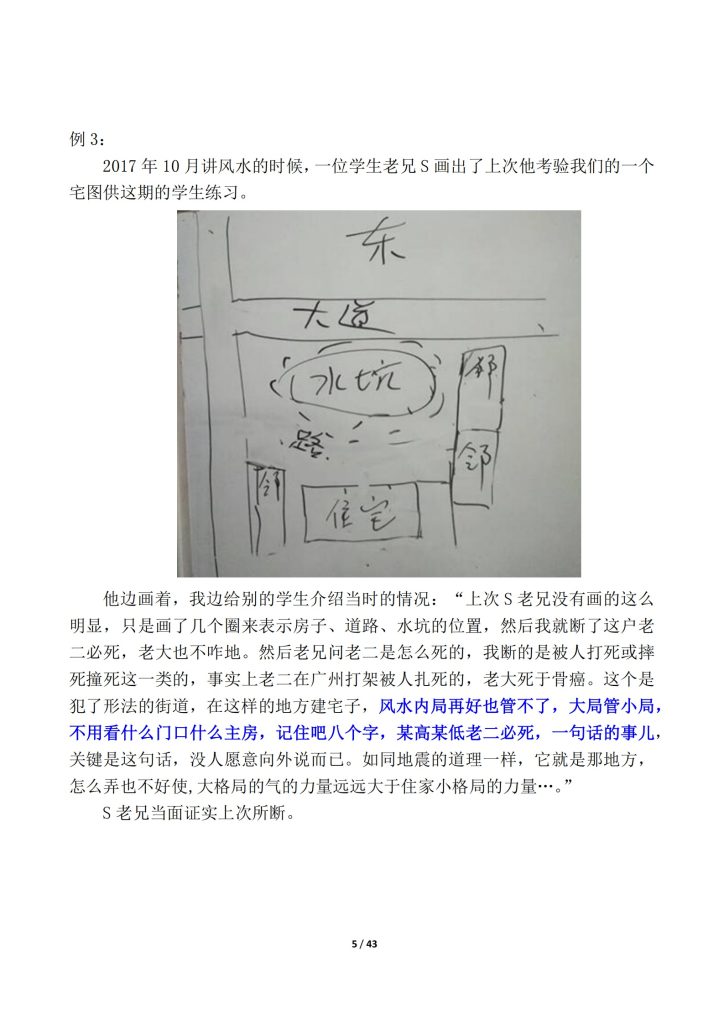 例 3：
2017 年 10 月讲风水的时候，一位学生老兄 S 画出了上次他考验我们的一个
宅图供这期的学生练习。
东
大道
水坑
邻
路
邻
邻
住宅
他边画着，我边给别的学生介绍当时的情况：“上次 S 老兄没有画的这么
明显，只是画了几个圈来表示房子、道路、水坑的位置，然后我就断了这户老
二必死，老大也不咋地。然后老兄问老二是怎么死的，我断的是被人打死或摔
死撞死这一类的，事实上老二在广州打架被人扎死的，老大死于骨癌。这个是
犯了形法的街道，在这样的地方建宅子，风水内局再好也管不了，大局管小局，
不用看什么门口什么主房，记住吧八个字，某高某低老二必死，一句话的事儿，
关键是这句话，没人愿意向外说而已。如同地震的道理一样，它就是那地方，
怎么弄也不好使,大格局的气的力量远远大于住家小格局的力量…。”
S 老兄当面证实上次所断。
5 / 43